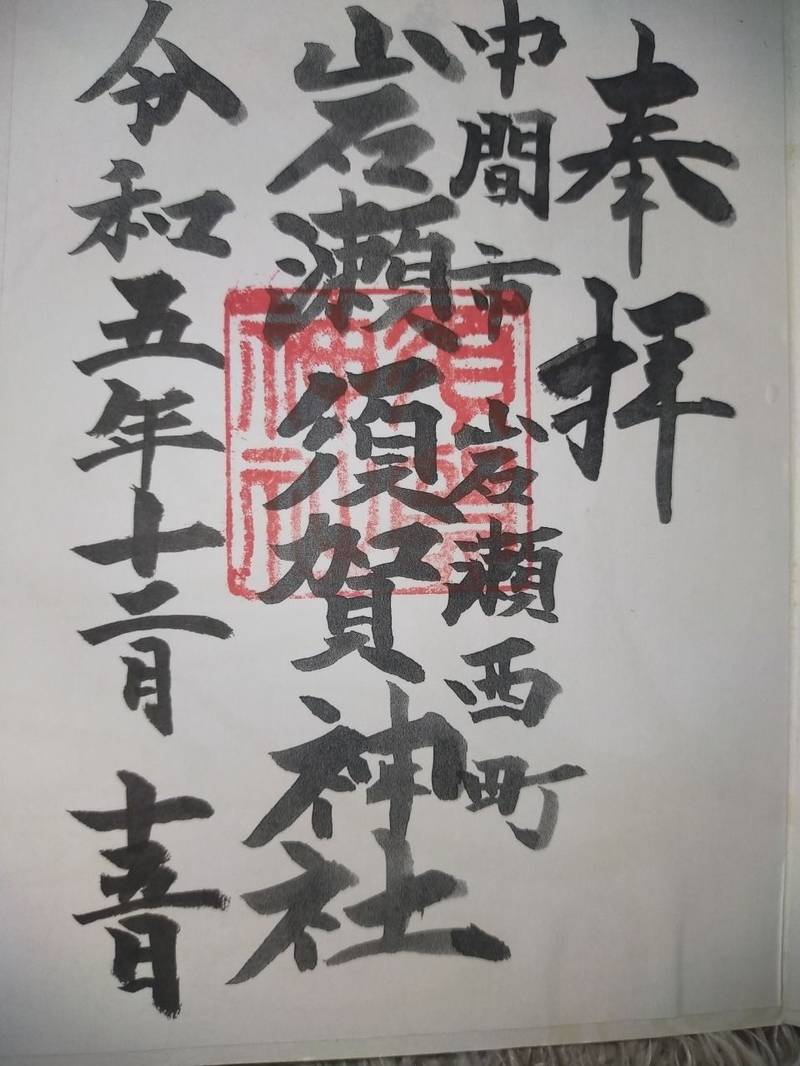 奉拝
中間市岩瀬西町
岩瀬須賀神社
令和五年十二月十五日